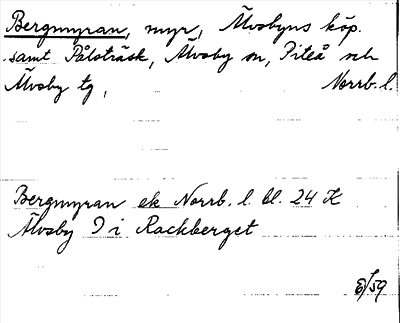 Bergmyran, myr, Älvsbyns köp.
samt Pålsträsk, Älvsby sn, Piteå och
Älvsby tg, Norrb. l.
Bergmyran ek Norrb. l. bl. 24 K
Älvsby I i Rackberget
E/59